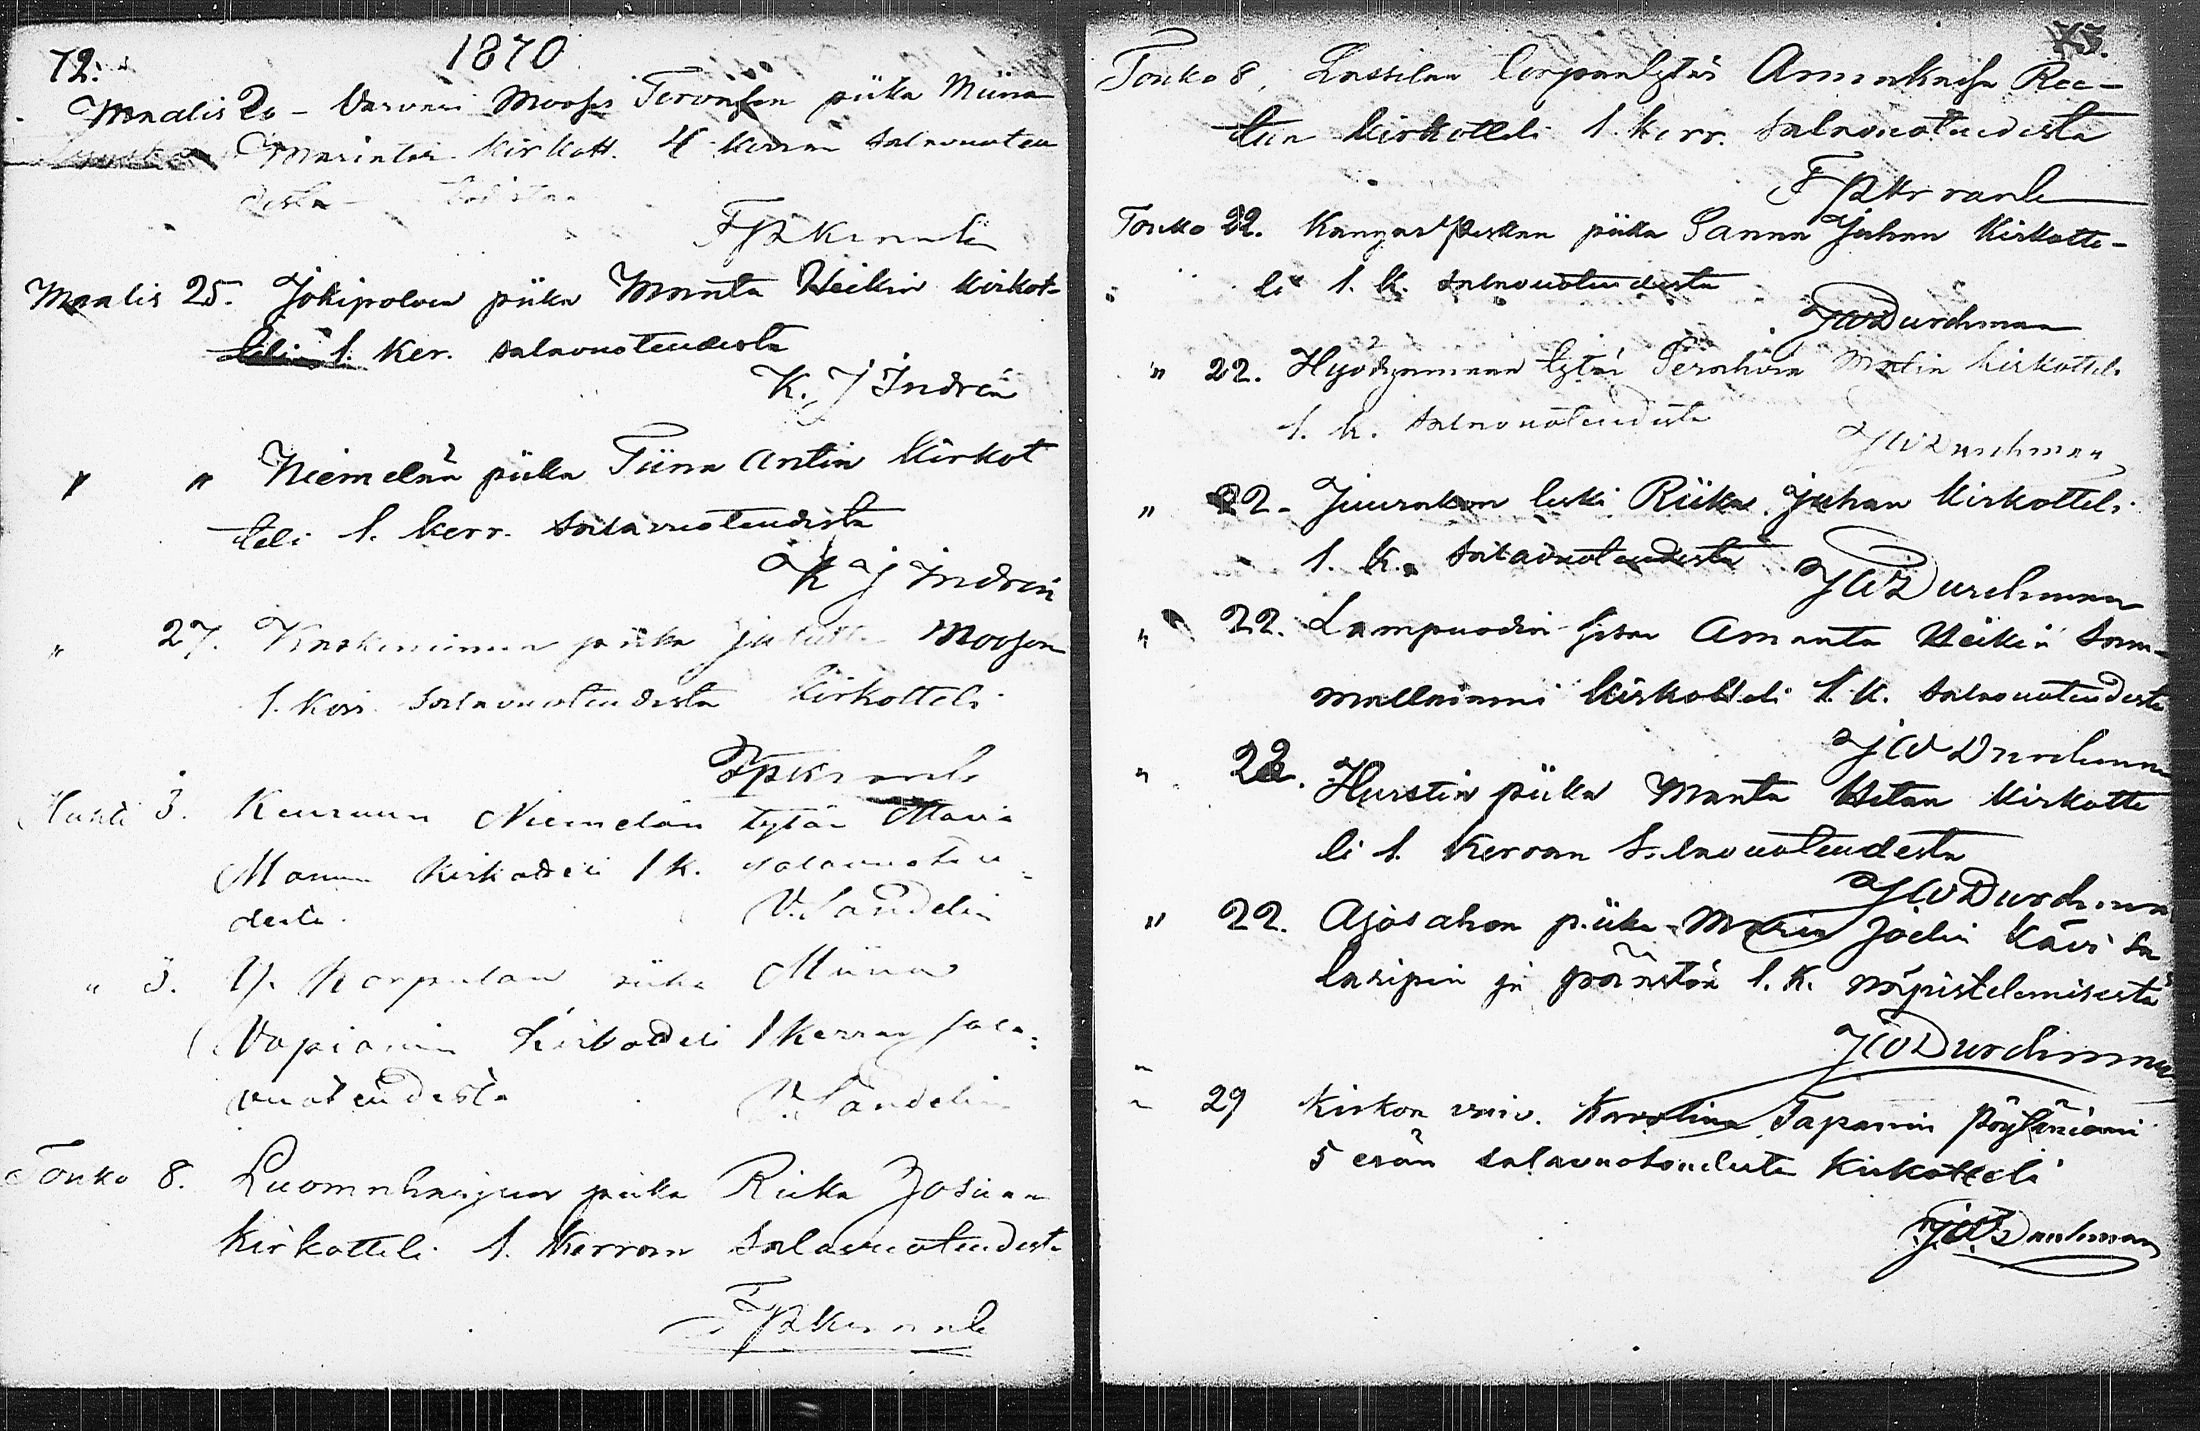 72.
1870
Maalis 20 - Varvari Moosis Tervosen piika Miina
Marintar kirkott. 4 kerran salavuoteu
desta
F P Krank
Maalis 25. Jokipolven piika Manta Heikin kirkot-
teli 1. ker. salavuoteudesta
K. J Indrén
" " Niemelän piika Tiina Antin kirkot
teli 1. kerr. salavuoteudesta
K J Indrén
" 27. Koskenniemen piika Moosen
1. kerr. salavuoteudesta kirkotteli
F P Krank
Huhti 3. Keuruun Niemelän tytär Maria
Manun kirkotteli 1 k. salavuoteu
desta.
V. Sandelin
" 3. Y. Korpulan piika Miina
Vapianin kirkotteli 1 kerran sala:
vuoteudesta
V. Sandelin
Touko 8. Luomahaaijan piika Riika Josuan
kirkotteli 1. kerran salavuoteudesta
F P Krank
73.
Touko 8, Lassilan torpantytär Annakaisa Ree-
tun kirkotteli 1. kerr. salavuoteudesta
F P Krank
Touko 22. Kangas Peskan piika Sanna Juhan kirkotte-
" li 1. k. salavuoteudesta
J W Durchman
" 22. Hyödynmaan tytär Serahvia Matin kirkotteli
1. k. salavuoteudesta
J W Durchman
" 22. Juurakon leski Riika Juhan kirkotteli
1. k. salavuoteudesta
J W Durchman
" 22. Lampuodin Amanta Heikin Sam-
mallniemi kirkotteli 1. k. salavuoteudesta
J W Durchman
" 22. Hurstin piika Manta Hetan kirkotte
li 1. kerran salavuoteudesta
J W Durchman
" 22. Ajosahon piika Maria Joelin kävi sa
laripin ja päästön 1. k. näpistelemisestä
J W Durchman
" 29 Kirkon vaiv. Karolina Tapanin Pöytäniemi
5 erän salavuoteudesta kirkotteli
J W Durchman